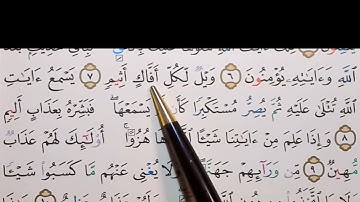 ٱللَّهِ وَءَايَٰتِهِۦ يُؤْمِنُونَ ٦ وَيْلٌ لِّكُلِّ أَفَّاكٍ أَثِيمٍ ٧ يَسْمَعُ ءَايَٰتِ
ٱللَّهِ تُتْلَىٰ عَلَيْهِ ثُمَّ يُصِرُّ مُسْتَكْبِرًا كَأَن يَسْمَعْهَا ۖ فَبَشِّرْهُ بِعَذَابٍ أَلِيمٍ
٨ وَإِذَا عَلِمَ مِنْ ءَايَٰتِنَا شَيْـًٔا هُزُوًا ۚ أُو۟لَٰٓئِكَ لَهُمْ عَذَابٌ
مُّهِينٌ ٩ مِّن وَرَآئِهِمْ جَهَنَّمُ وَلَا يُغْنِى عَنْهُم مَّا كَسَبُوا۟ شَيْـًٔا